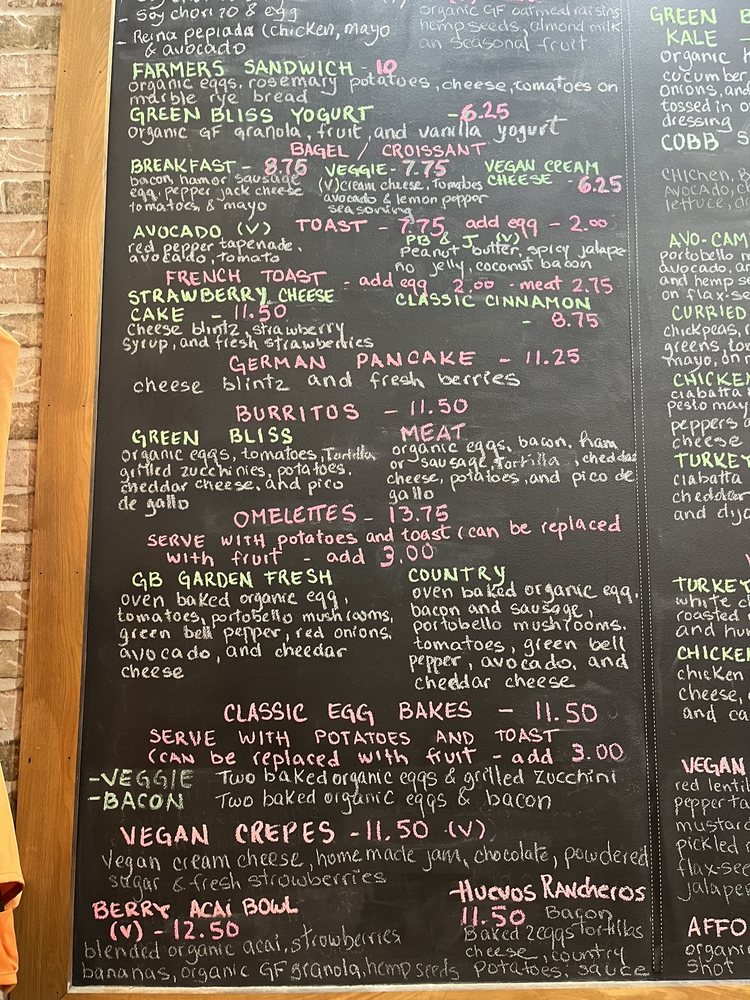 - Soy chorizo & egg
- Reina pepiada (chicken, mayo
& avocado
organic GF oatmeal raisins
hemp seeds, almond milk
an seasonal fruit
FARMERS SANDWICH - 10
organic eggs, rosemary potatoes, cheese, tomatoes on
marble rye bread
GREEN BLISS YOGURT - 6.25
organic GF granola, fruit, and vanilla yogurt
BAGEL / CROISSANT
BREAKFAST - 8.75
bacon, ham or sausage
egg, pepper jack cheese
tomatoes, & mayo
VEGGIE - 7.75
(v) cream cheese, tomatoes
avocado & lemon pepper
seasoning
VEGAN CREAM
CHEESE - 6.25
TOAST - 7.75 add egg - 2.00
AVOCADO (V)
red pepper tapenade,
avocado, tomato
PB & J (V)
peanut butter, spicy jalape-
no jelly, coconut bacon
FRENCH TOAST - add egg 2.00 - meat 2.75
STRAWBERRY CHEESE
CAKE - 11.50
cheese blintz, strawberry
syrup, and fresh strawberries
CLASSIC CINNAMON
- 8.75
GERMAN PANCAKE - 11.25
cheese blintz and fresh berries
BURRITOS - 11.50
GREEN BLISS
organic eggs, tomatoes, Tortilla,
grilled zucchinies, potatoes,
cheddar cheese, and pico
de gallo
MEAT
organic eggs, bacon, ham
or sausage, Tortilla, cheddar
cheese, potatoes, and pico de
gallo
OMELETTES - 13.75
SERVE WITH potatoes and toast (can be replaced
with fruit - add 3.00
GB GARDEN FRESH
oven baked organic egg,
tomatoes, portobello mushrooms,
green bell pepper, red onions,
avocado, and cheedar
cheese
COUNTRY
oven baked organic egg,
bacon and sausage,
portobello mushrooms.
tomatoes, green bell
pepper, avocado, and
cheddar cheese
CLASSIC EGG BAKES - 11.50
SERVE WITH POTATOES AND TOAST
(CAN be replaced with fruit - add 3.00
- VEGGIE Two baked organic eggs & grilled zucchini
- BACON Two baked organic eggs & bacon
VEGAN CREPES - 11.50 (V)
Vegan cream cheese, home made jam, chocolate, powdered
sugar & fresh strowberries
BERRY ACAI BOWL
(V) - 12.50
blended organic acai, strowberries
bananas, organic GF granola, hemp seeds
- HUEVOS RANCHEROS
11.50 Bacon
Baked 2 eggs tortillas
cheese, country
potatoes, sauce
GREEN B
KALE
organic
cucumber
onions, and
tossed in
dressing
COBB S
CHICKEN, B
AVOCADO, C
lettuce,
AVO-CAM
portobello m
avocado, a
and hemp se
on flax-se
CURRIED
chickpeas,
greens, tom
mayo, on
CHICKEN
ciabatta
pesto may
peppers a
cheese
TURKEY
ciabatta
cheddar
and dijo
TURKEY
white c
roasted
and hu
CHICKEN
chicken
cheese,
and ca
VEGAN
red lentil
pepper ta
mustard
pickled
flax-see
jalape
AFFO
organi
shot